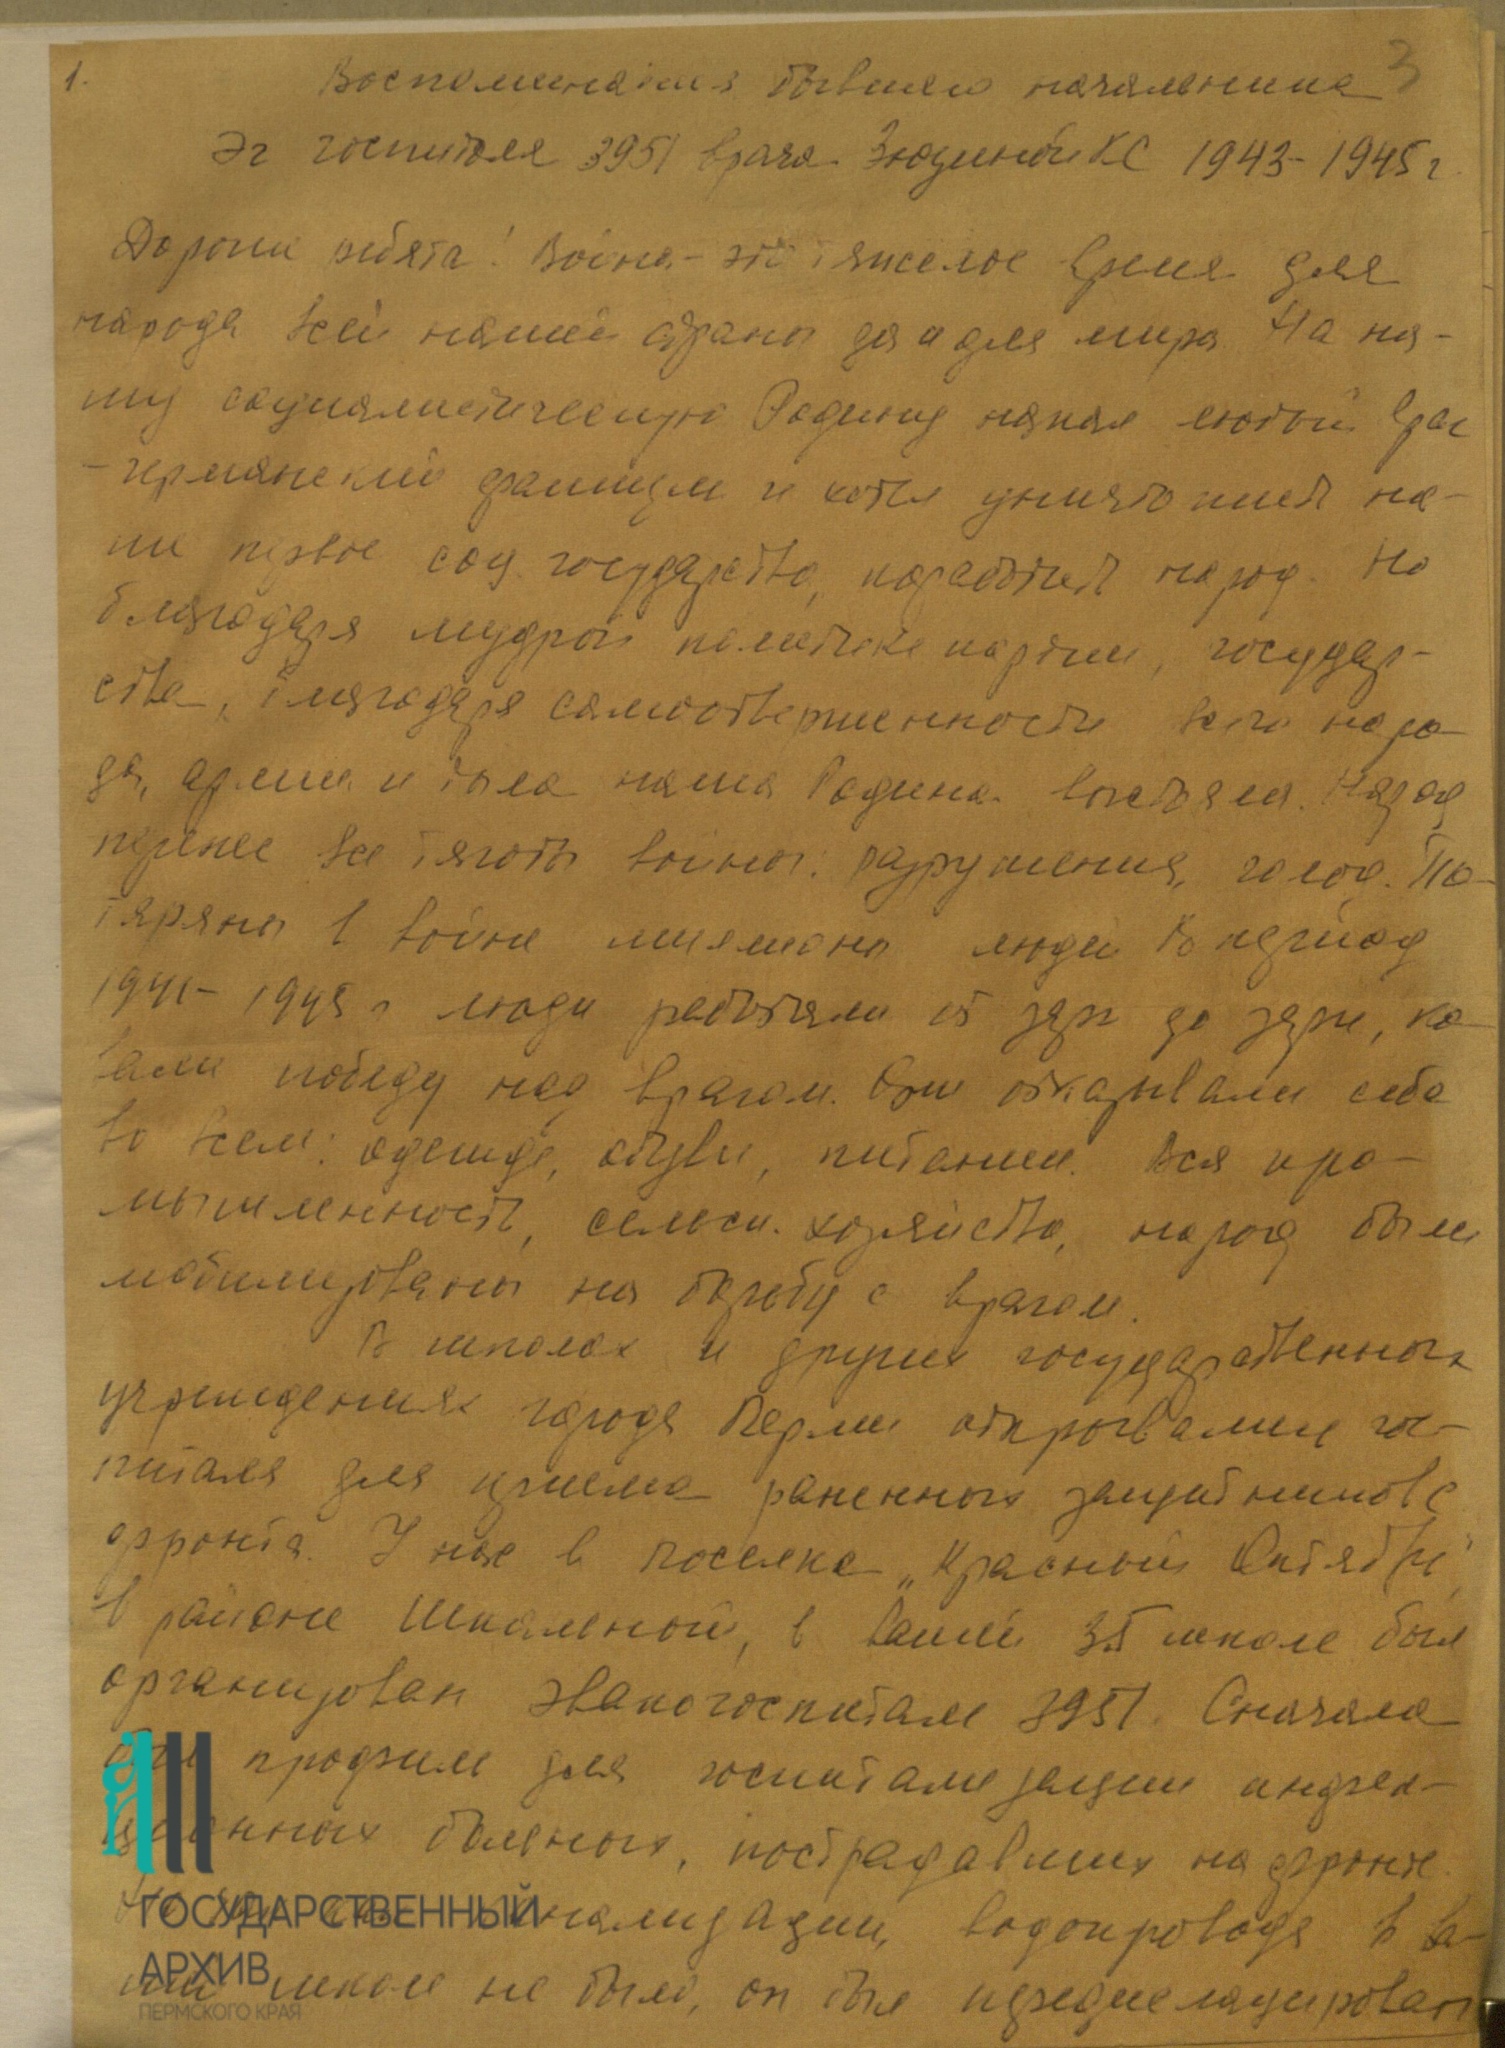 1.
3
Воспоминания бывшего начальника
Эг госпиталя 3951 врача Зюзиной КС 1943-1945 г.
Дорогие ребята! Война - это тяжелое время для
народа всей нашей страны да и для мира. На на-
шу социалистическую Родину напал лютый враг
- германский фашизм и хотел уничтожить на-
ше первое соц. государство, поработить народ. Но
благодаря мудрой политике партии, государ-
ства, благодаря самоотверженности всего наро-
да, армии и тыла наша Родина выстояла. Народ
перенес все тяготы войны: разрушения, голод. По-
теряны в войне миллионы людей. В период
1941- 1945 г люди работали от зари до зари, ко-
вали победу над врагом. Они отказывали себе
во всем: одежде, обуви, питании. Вся про-
мышленность, сельск. хозяйство, народ были
мобилизованы на борьбу с врагом.
В школах и других государственных
учреждениях города Перми открывались гос-
питаля для приема раненных защитников с
фронта. У нас в поселке „Красный Октябрь"
в районе Шпальной, в вашей 35 школе был
организован эвакогоспиталь 3951. Сначала
был профиль для госпитализации инфек-
ционных больных, пострадавших на фронте.
канализации, водопровода в ва-
шей школе не было, он был передислоцирован
ГОСУДАРСТВЕННЫЙ
АРХИВ
ПЕРМСКОГО КРАЯ